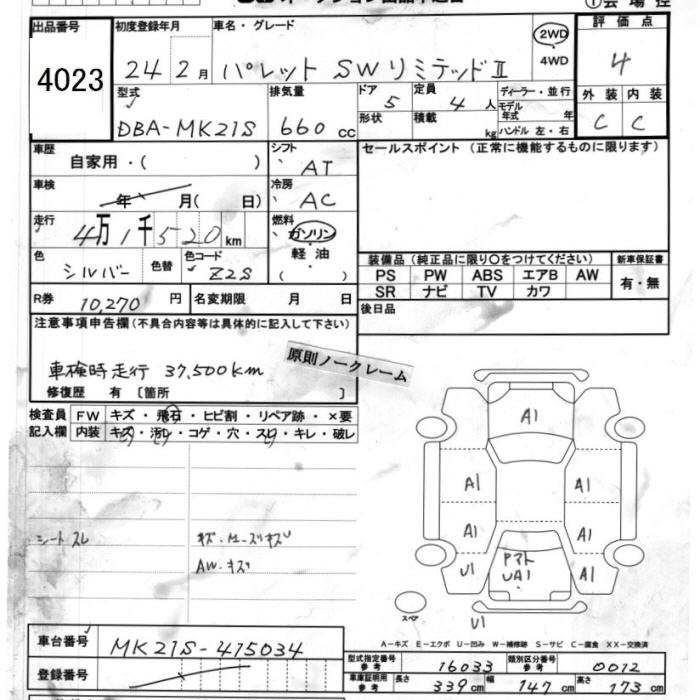 ①会場控
出品番号
4023
初度登録年月
24 2月
車名・グレード
パレット SWリミテッドⅡ
2WD
4WD
評価点
4
外装 内装
C C
型式
DBA-MK21S
排気量
660 cc
ドア 5
形状
定員 4 人
積載 kg
ディーラー・並行
モデル年式 年
ハンドル 左・右
車歴
自家用・( )
シフト
AT
車検
年 月( 日)
冷房
AC
走行
4万1千520km
燃料
ガソリン
軽油
( )
色
シルバー
色替
色コード
Z2S
R券 10,270 円
名変期限 月 日
セールスポイント (正常に機能するものに限ります)
装備品 (純正品に限り〇をつけてください)
PS PW ABS エアB AW
SR ナビ TV カワ
新車保証書
有・無
後日品
注意事項申告欄(不具合内容等は具体的に記入して下さい)
車検時走行 37,500km
修復歴 有 [箇所 ]
原則ノークレーム
検査員
記入欄
FW キズ・飛石・ヒビ割・リペア跡・×要
内装 キズ・汚レ・コゲ・穴・スレ・キレ・破レ
シートスレ
AW・キズ
A1
A1 A1
A1 A1
U1 A1
UA1
U1
スペア
A-キズ E-エクボ U-凹み W-補修跡 S-サビ C-腐食 XX-交換済
車台番号
MK21S-415034
登録番号
型式指定番号 参考 16033
類別区分番号 参考 0012
車庫証明用 参考 長さ 339cm 幅 147cm 高さ 173cm